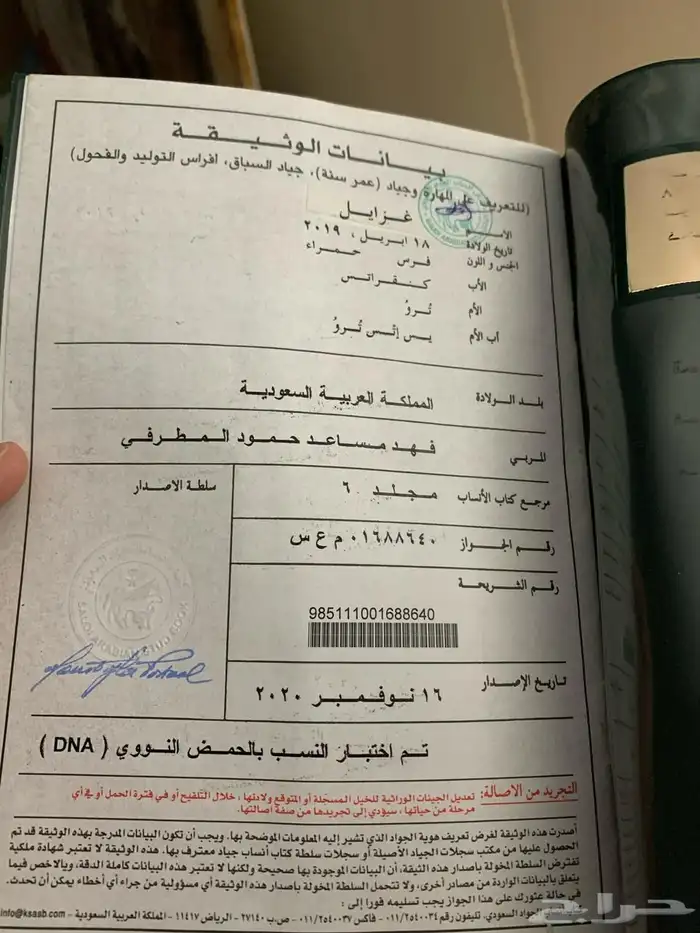 بيانات الوثيقة
(للتعريف على المهارة وجياد (عمر سنة)، جياد السباق، افراس التوليد والفحول)
الاسم غزايل
تاريخ الولادة ١٨ ابريل، ٢٠١٩
الجنس و اللون فرس حمراء
الأب كنقراتس
الأم ثرو
أب الأم يس إتس ثرو
بلد الولادة المملكة العربية السعودية
المربي فهد مساعد حمود المطرفي
مرجع كتاب الأنساب مجلد ٦
سلطة الاصدار
رقم الجواز ٠١٦٨٨٦٤٠ م ع س
رقم الشريحة
985111001688640
تاريخ الإصدار ١٦ نوفمبر ٢٠٢٠
تم اختبار النسب بالحمض النووي ( DNA )
التجريد من الاصالة: تعديل الجينات الوراثية للخيل المسجلة أو المتوقع ولادتها ، خلال التلقيح أو في فترة الحمل أو في أي
مرحلة من حياتها، سيؤدي إلى تجريدها من صفة اصالتها.
أصدرت هذه الوثيقة لغرض تعريف هوية الجواد الذي تشير إليه المعلومات الموضحة بها. ويجب أن تكون البيانات المدرجة بهذه الوثيقة قد تم
الحصول عليها من مكتب سجلات الجياد الأصيلة أو سجلات سلطة كتاب أنساب جياد معترف بها. هذه الوثيقة لا تعتبر شهادة ملكية
تفترض السلطة المخولة بإصدار هذه الثيقة، أن البيانات الموجودة بها صحيحة ولكنها لا تعتبر هذه البيانات كاملة الدقة، وبالاخص فيما
يتعلق بالبيانات الواردة من مصادر أخرى، ولا تتحمل السلطة المخولة بإصدار هذه الوثيقة أي مسؤولية من جراء أي أخطاء يمكن أن تحدث.
في حالة عثورك على هذا الجواز يجب تسليمه فورا إلى :
الجواد السعودي. تليفون رقم ٠١١/٢٥٤٠٠٣٤ - فاكس ٠١١/٢٥٤٠٠٣٧ - ص.ب ٢٧١٤٠ - الرياض ١١٤١٧ - المملكة العربية السعودية - info@ksasb.com
حراج